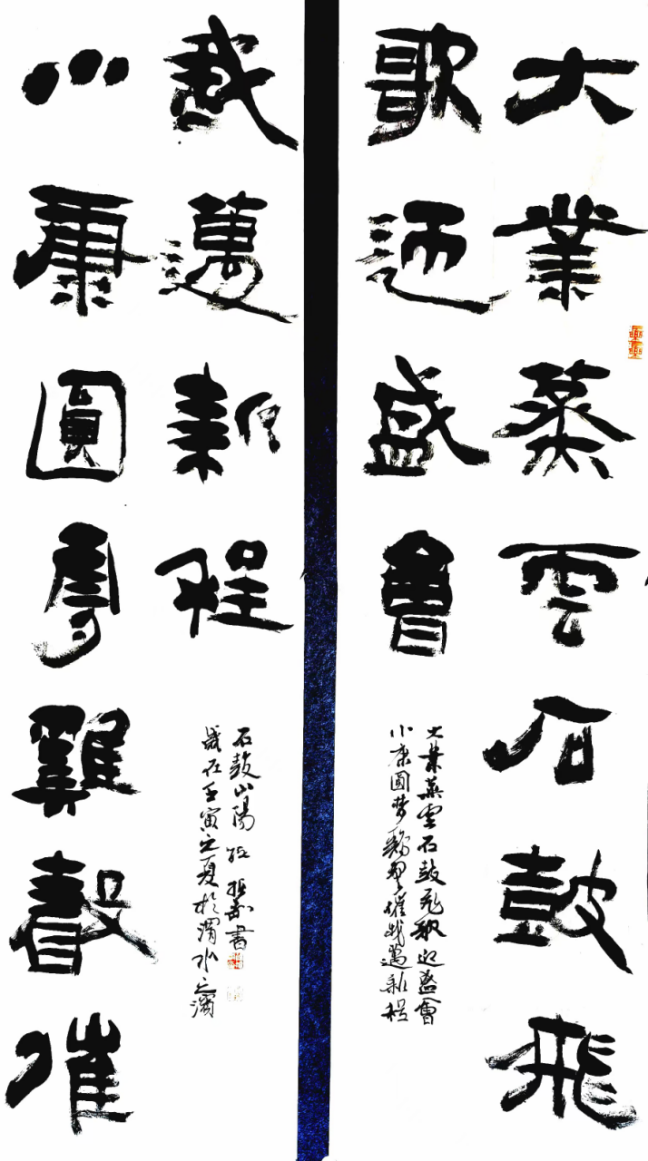 大業蒸雲石鼓飛
歌迎盛會
大業蒸雲石鼓飛歌迎盛會
小康圓夢鷄聲催我邁新程
小康圓夢雞聲催
我邁新程
石鼓山陽 書
歲在壬寅之夏於渭水之濱